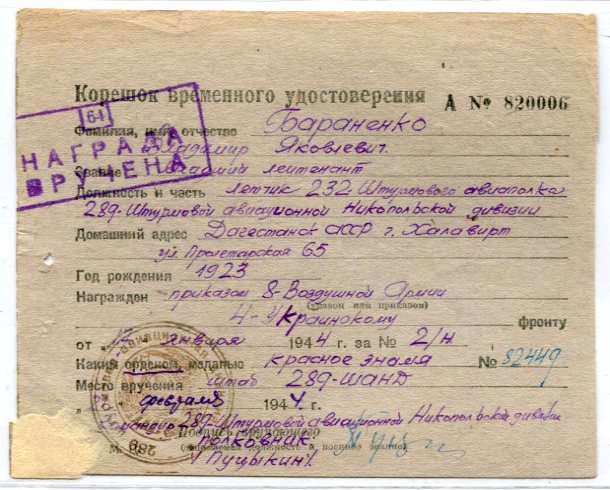 Корешок временного удостоверения А № 820006
64
НАГРАДА
ВРУЧЕНА
Фамилия, имя, отчество Бараненко
Владимир Яковлевич.
Звание лейтенант
Должность и часть летчик 232 Штурмового авиаполка
289-Штурмовой авиационной Никопольской дивизии
Домашний адрес Дагестанск АССР г. Халавюрт
ул. Пролетарская 65
Год рождения 1923
Награжден приказом 8-Воздушной Армии
(указом или приказом)
4-Украинскому фронту
от января 1944 г. за № 2/н
Каким орденом, медалью красное знамя № 82449
Место вручения штаб 289-ШАНД
февраля 1944 г.
Командир 289-Штурмовой авиационной Никопольской дивизии
Подпись вручающего
Полковник.
(Пуцыкин).